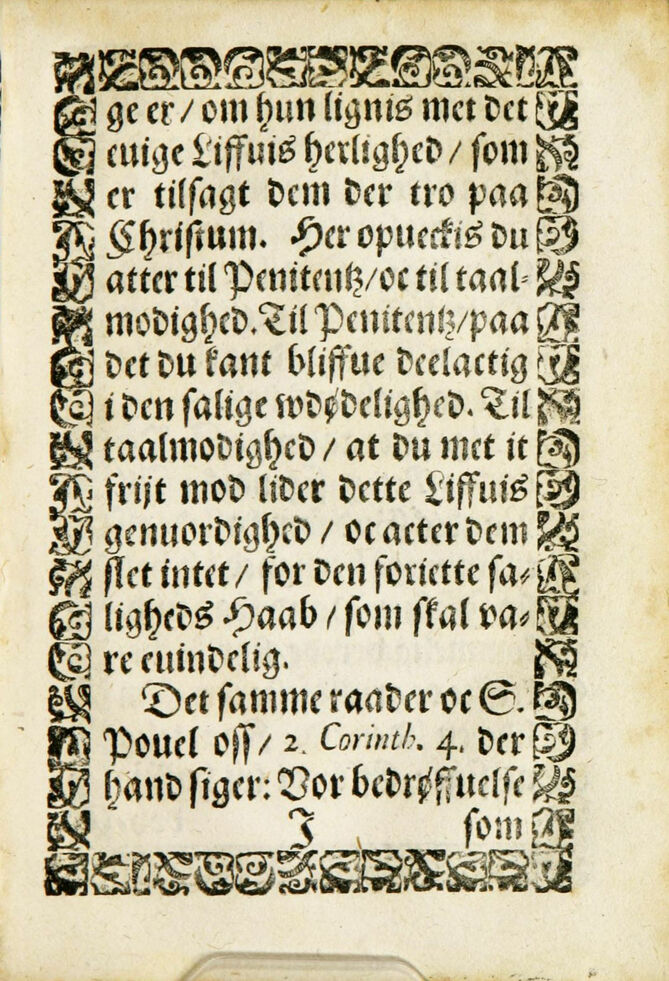 ge er / om hun lignis met det
euige Liffuis herlighed / som
er tilsagt dem der tro paa
Christum. Her opueckis du
atter til Penitentz / oc til taal-
modighed. Til Penitentz / paa
det du kant bliffue deelactig
i den salige wdødelighed. Til
taalmodighed / at du met it
frijt mod lider dette Liffuis
genuordighed / oc acter dem
slet intet / for den foriette sa-
ligheds Haab / som skal va-
re euindelig.
Det samme raader oc S.
Pouel oss / 2. Corinth. 4. der
hand siger: Vor bedrøffuelse
J som